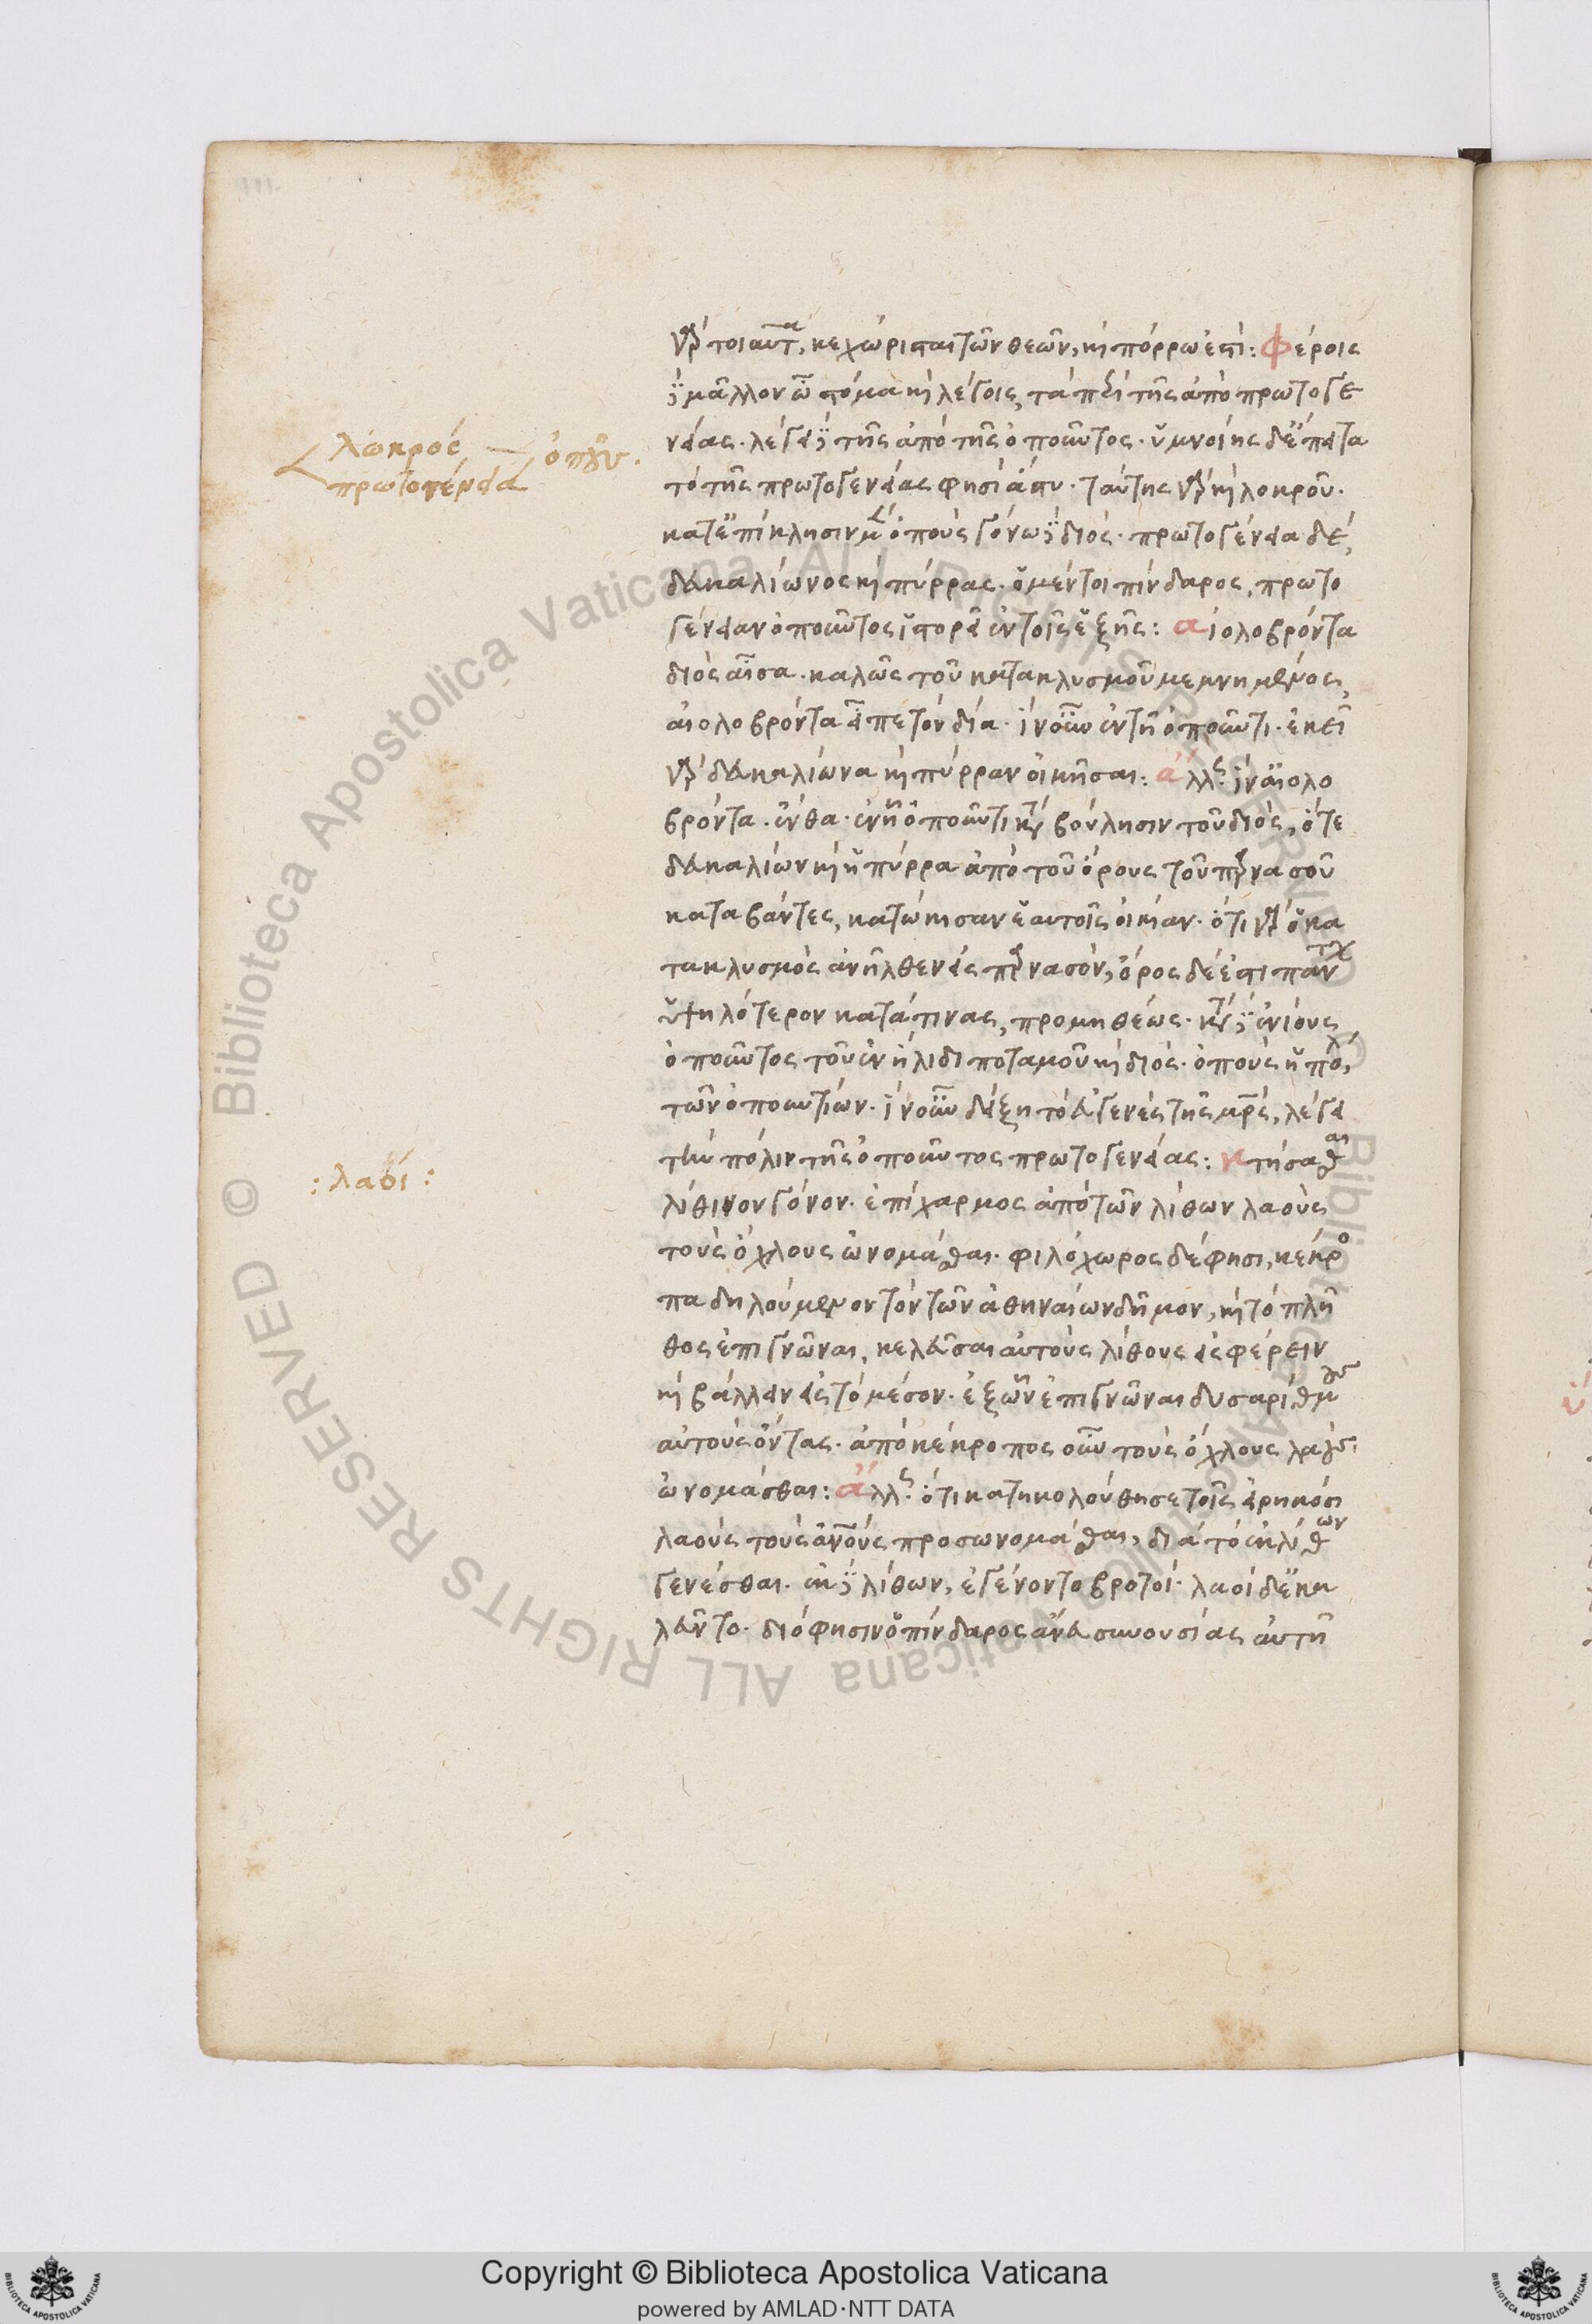 γὰρ τοιαῦτα, κεχώρισται τῶν θεῶν, καὶ πόρρω ἐστί: Φέροις
δὲ μᾶλλον ὦ στόμα καὶ λέγοις, τὰ περὶ τῆς ἀπὸ πρωτογε
νείας. λέγει δὲ τῆς ἀπὸ τῆς ὀποῦντος. ὕμνοι ης δε
τὸ τῆς πρωτογενείας φησὶ ἄστυ. ταύτης γὰρ καὶ λοκροῦ.
κατ' ἐπίκλησιν μὲν ὀποῦς γόνω δὲ διός. πρωτογένεια δέ,
δευκαλίωνος καὶ πύρρας. ὁ μέντοι πίνδαρος, πρωτο
γένειαν ὀποῦντος ἱστορεῖ ἐν τοῖς ἑξῆς: αἰολοβρόντα
διὸς αἶσα. καλῶς τοῦ κατακλυσμοῦ μεμνημένος,
αἰολοβρόντα εἶπε τὸν δία. ἵν' οὖν ἐν τῇ ὀποῦντι. ἐκεῖ
γὰρ δευκαλίωνα καὶ πύρραν οἰκῆσαι: ἄλλως. ἵν' αἰολο
βρόντα. ἔνθα. ἐν ᾗ ὀποῦντι κατὰ βούλησιν τοῦ διὸς, ὅτε
δευκαλίων καὶ ἡ πύρρα ἀπὸ τοῦ ὄρους τοῦ παρνασοῦ
καταβάντες, κατῴκησαν ἑαυτοῖς οἰκίαν. ὅτι γὰρ ὁ κα
τακλυσμὸς ἀνῆλθεν εἰς παρνασόν, ὄρος δέ ἐστι πανταχ
ὑψηλότερον κατά τινας, προμηθέως. κατὰ δὲ ἐνίους
ὀποῦντος τοῦ ἐν ἤλιδι ποταμοῦ καὶ διός. ὀποῦς ἡ πόλ,
τῶν ὀπουντίων. ἵν' οὖν δείξη τὸ εὐγενὲς τῆς μητρὸς, λέγει
τὴν πόλιν τῆς ὀποῦντος πρωτογενείας: κτήσασθαι
λίθινον γόνον. ἐπίχαρμος ἀπὸ τῶν λίθων λαοὺς
τοὺς ὄχλους ὠνομάσθαι. φιλόχωρος δέ φησι, κέκρο
πα δηλούμενον τὸν τῶν ἀθηναίων δῆμον, καὶ τὸ πλῆ
θος ἐπιγνῶναι, κελεῦσαι αὐτοὺς λίθους εἰσφέρειν
καὶ βάλλειν εἰς τὸ μέσον. ἐξ ὧν ἐπιγνῶναι δυσαρίθμους
αὐτοὺς ὄντας. ἀπὸ κέκροπος οὖν τοὺς ὄχλους λαοὺς
ὠνομάσθαι: ἄλλως. ὅτι κατηκολούθησε τοῖς εἰρηκόσι
λαοὺς τοὺς ἀνθρώπους προσωνομάσθαι, διὰ τὸ ἐκ λίθων
γενέσθαι. ἐκ δὲ λίθων, ἐγένοντο βροτοί. λαοὶ δὲ κα
λεῦντο. διό φησιν ὁ πίνδαρος ἄνευ συνουσίας αὐτῆ
λωκρός
πρωτογένεια
ὀποῦν.
: λαοί :
© Biblioteca Apostolica Vaticana ALL RIGHTS RESERVED © Biblioteca Apostolica Vaticana ALL RIGHTS RESERVED
Copyright © Biblioteca Apostolica Vaticana
powered by AMLAD·NTT DATA
BIBLIOTECA APOSTOLICA VATICANA
BIBLIOTECA APOSTOLICA VATICANA